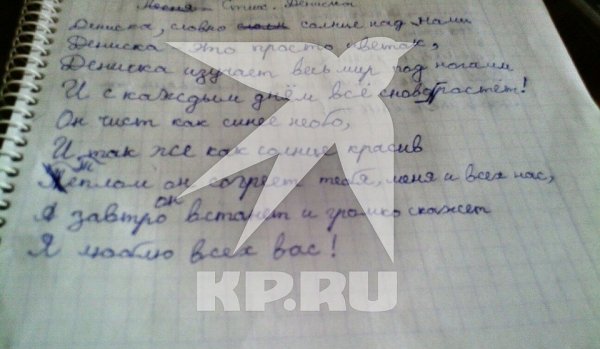 Песня - Стих. Дениска
Дениска, словно солнце над нами
Дениска это просто цветок,
Дениска изучает весь мир под ногами
И с каждым днём всё снова растёт!
Он чист как синее небо,
И так же как солнце красив
Теплом он согреет тебя, меня и всех нас,
А завтро он встанет и громко скажет
Я люблю всех вас!
KP.RU